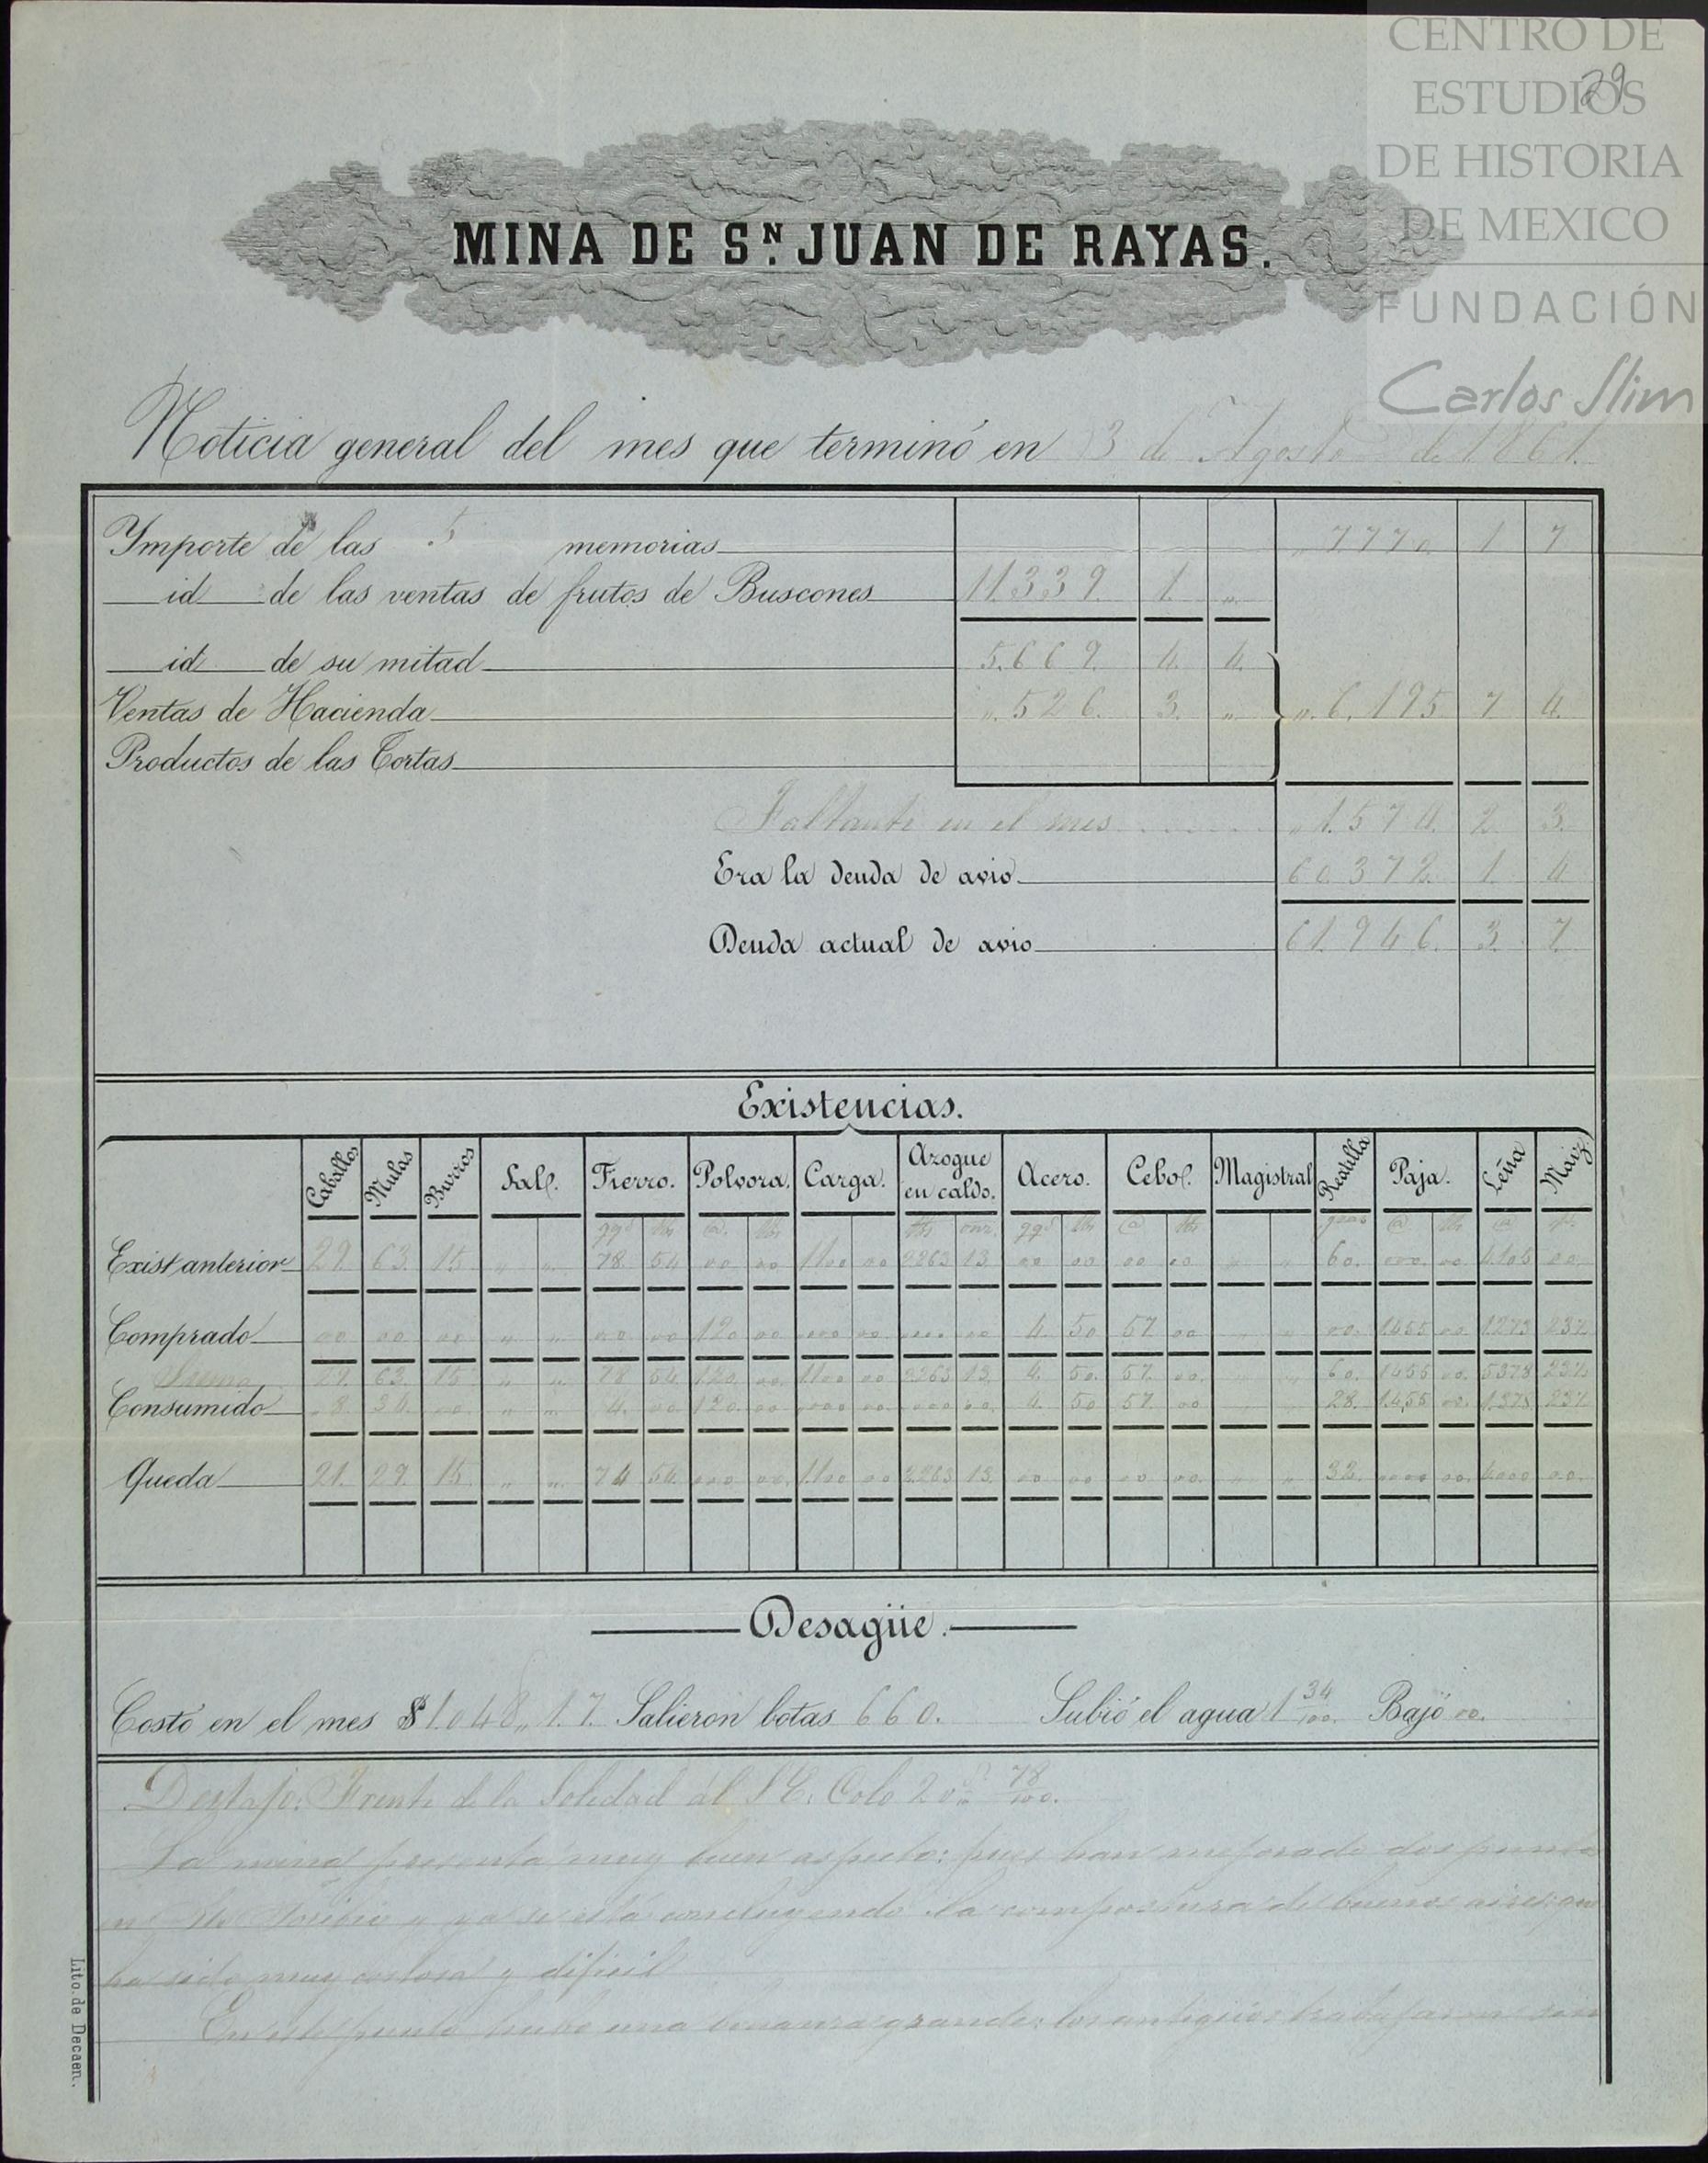 CENTRO DE
ESTUDIOS
DE HISTORIA
DE MEXICO
FUNDACIÓN
Carlos Slim
29
MINA DE SN. JUAN DE RAYAS.
Noticia general del mes que terminó en 3 de Agosto de 1861.
Ymporte de las 5 memorias „ 7770. 1 7
id de las ventas de frutos de Buscones 11.339. 1. „
id de su mitad 5.669. 4. 4.
Ventas de Hacienda „ 526. 3. „ „ 6.195 7 4.
Productos de las Tortas
Faltante en el mes „ 1.574. 2. 3.
Era la deuda de avio 60.372. 1. 4
Deuda actual de avio 61.946. 3. 7.
Existencias.
Caballos Mulas Burros Sal. Fierro. Polvora. Carga. Azogue en caldo. Acero. Cebo. Magistral Reatilla Paja. Léña Maiz.
qqs lbs @. lbs lbs onz. qqs lbs @ lbs @ lbs @
Exist anterior 29. 63. 15 „ „ 78. 54 00 00 1100 00 2263 13. 00 00 00 00 „ „ 60. 000. 00 4105 00.
Comprado 00 00 00 „ „ 00 00 120 00 000 00 0000 00 4. 50 57 00 „ „ 00. 1455 00. 1273 237.
Suma 29. 63. 15 „ „ 78 54 120. 00. 1100 00 2263 13. 4. 50. 57. 00. „ „ 60. 1455 00. 5378 237.
Consumido 8. 34. 00. „ „ 4. 00 120. 00 000 00. 000 00. 4. 50 57. 00 „ „ 28. 1455 00. 1378 237
Queda 21. 29. 15. „ „ 74 54. 000 00. 1100 00 2.263 13. 00 00 00 00. „ „ 32. 0000 00. 4000 00.
Desagüe.
Costó en el mes $1.048„ 1.7. Salieron botas 660. Subió el agua 1 34/100. Bajó 00.
Destajo: Frente de la Soledad al S.E. Colo 20 78/100.
La mina presenta muy buen aspecto: pues han mejorado dos puntos
en y ya se está concluyendo la compostura de buenos aires que
ha sido muy costosa y dificil
En este punto hubo una bonanza grande: los antigüos trabajaron
Lito. de Decaen.